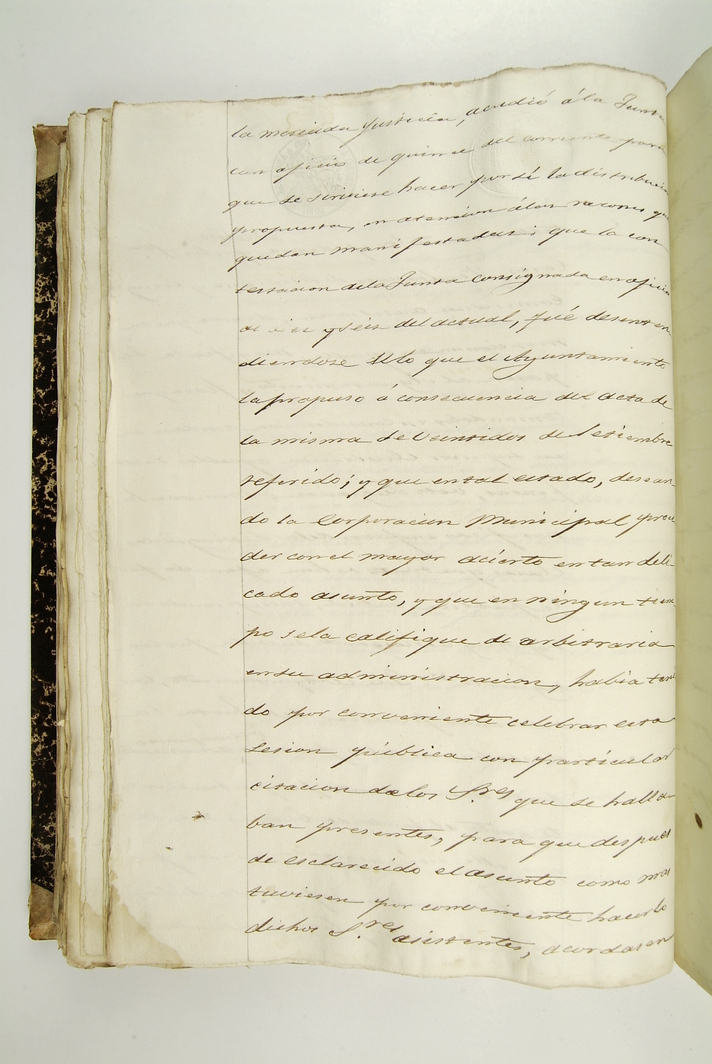 la meriada Justicia, acudió á la Junta
con oficio de quince del corriente para
que se sirviese hacer por sí la distribucion
propuesta, en atencion á las razones que
quedan manifestadas; que la con
testacion de la Junta consignada en oficio
y séis del actual, fué desenten
diendose de lo que el Ayuntamiento
la propuso á consecuencia del acta de
la misma de Veintidos de Setiembre
referido; y que en tal estado, desean
do la Corporacion Municipal proce
der con el mayor acierto en tan deli
cado asunto, y que en ningun tiem
po se la califique de arbitraria
en su administracion, habia teni
do por conveniente celebrar esta
sesion pública con particular
citacion de los S.res que se halla
ban presentes, para que despues
de esclarecido el asunto como mas
tuviesen por conveniente hacerlo
dichos S.res asistentes, acordasen